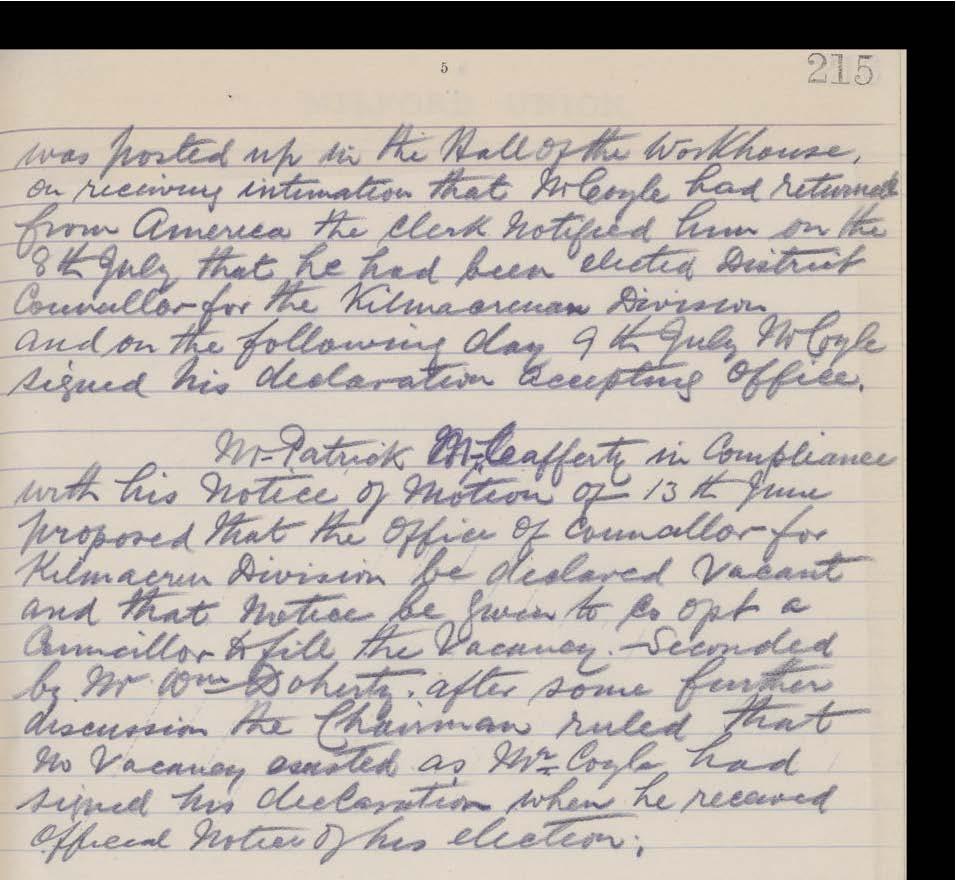 5
215
was posted up in the Hall of the Workhouse.
on receiving intimation that Mr Coyle had returned
from America the Clerk Notified him on the
8th July that he had been elected District
Councillor for the Kilmacrenan Division
and on the following day 9th July Mr Coyle
signed his declaration accepting Office.
Mr Patrick McCafferty in Compliance
with his Notice of Motion of 13th June
proposed that the Office of Councillor for
Kilmacren Division be declared Vacant
and that Notice be given to Co opt a
Councillor to fill the Vacancy. - Seconded
by Mr Wm Doherty. after some further
discussion the Chairman ruled that
no Vacancy existed as Mr Coyle had
signed his declaration when he received
Official Notice of his election.